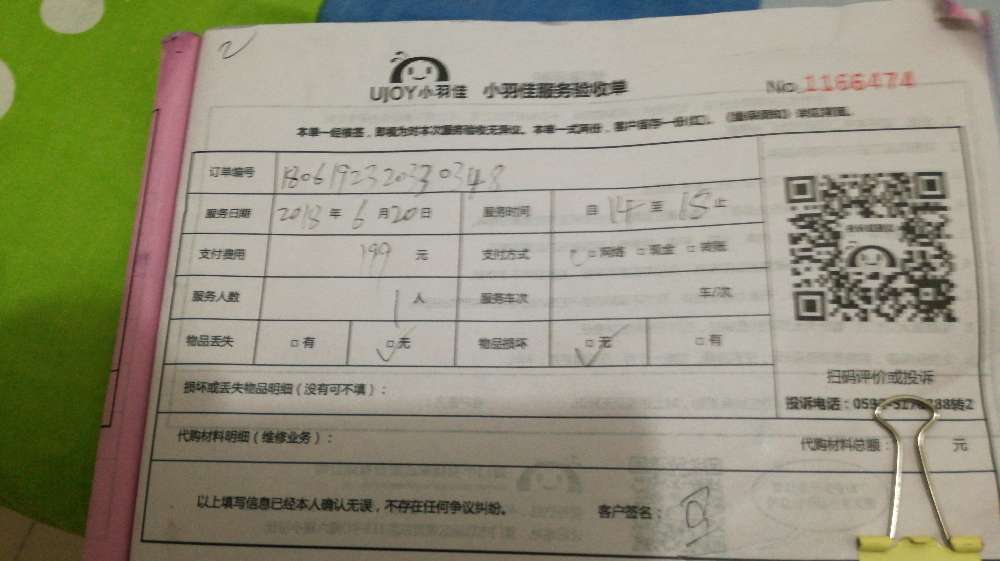 UJOY小羽佳 小羽佳服务验收单 No.1166474
本单一经签签，即视为对本次服务验收无异议。本单一式两份，客户留存一份(红)。
订单编号 1806192320330348
服务日期 2018 年 6 月 20 日 服务时间 自 14 至 15 止
支付费用 199 元 支付方式 □网络 □现金 □转账
服务人数 1 人 服务车次 车/次
物品丢失 □有 □无 物品损坏 □无 □有
扫码评价或投诉
损坏或丢失物品明细（没有可不填）：
投诉电话：059 288转2
代购材料明细（维修业务）： 代购材料总额： 元
以上填写信息已经本人确认无误，不存在任何争议纠纷。 客户签名：